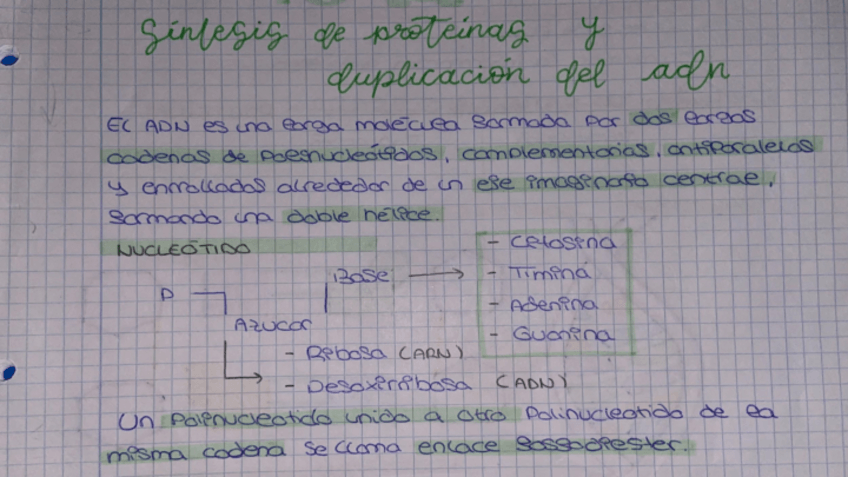 Síntesis de proteínas y
duplicación del adn
El ADN es una larga molécula formada por dos largas
cadenas de polinucleótidos, complementarias, antiparalelas
y enrolladas alrededor de un eje imaginario central,
formando una doble hélice.
NUCLEÓTIDO
P
Azucar
Base
- Citosina
- Timina
- Adenina
- Guanina
- Ribosa (ARN)
- Desoxirribosa (ADN)
Un Polinucleotido unido a otro Polinucleotido de la
misma cadena se llama enlace fosfodiester.